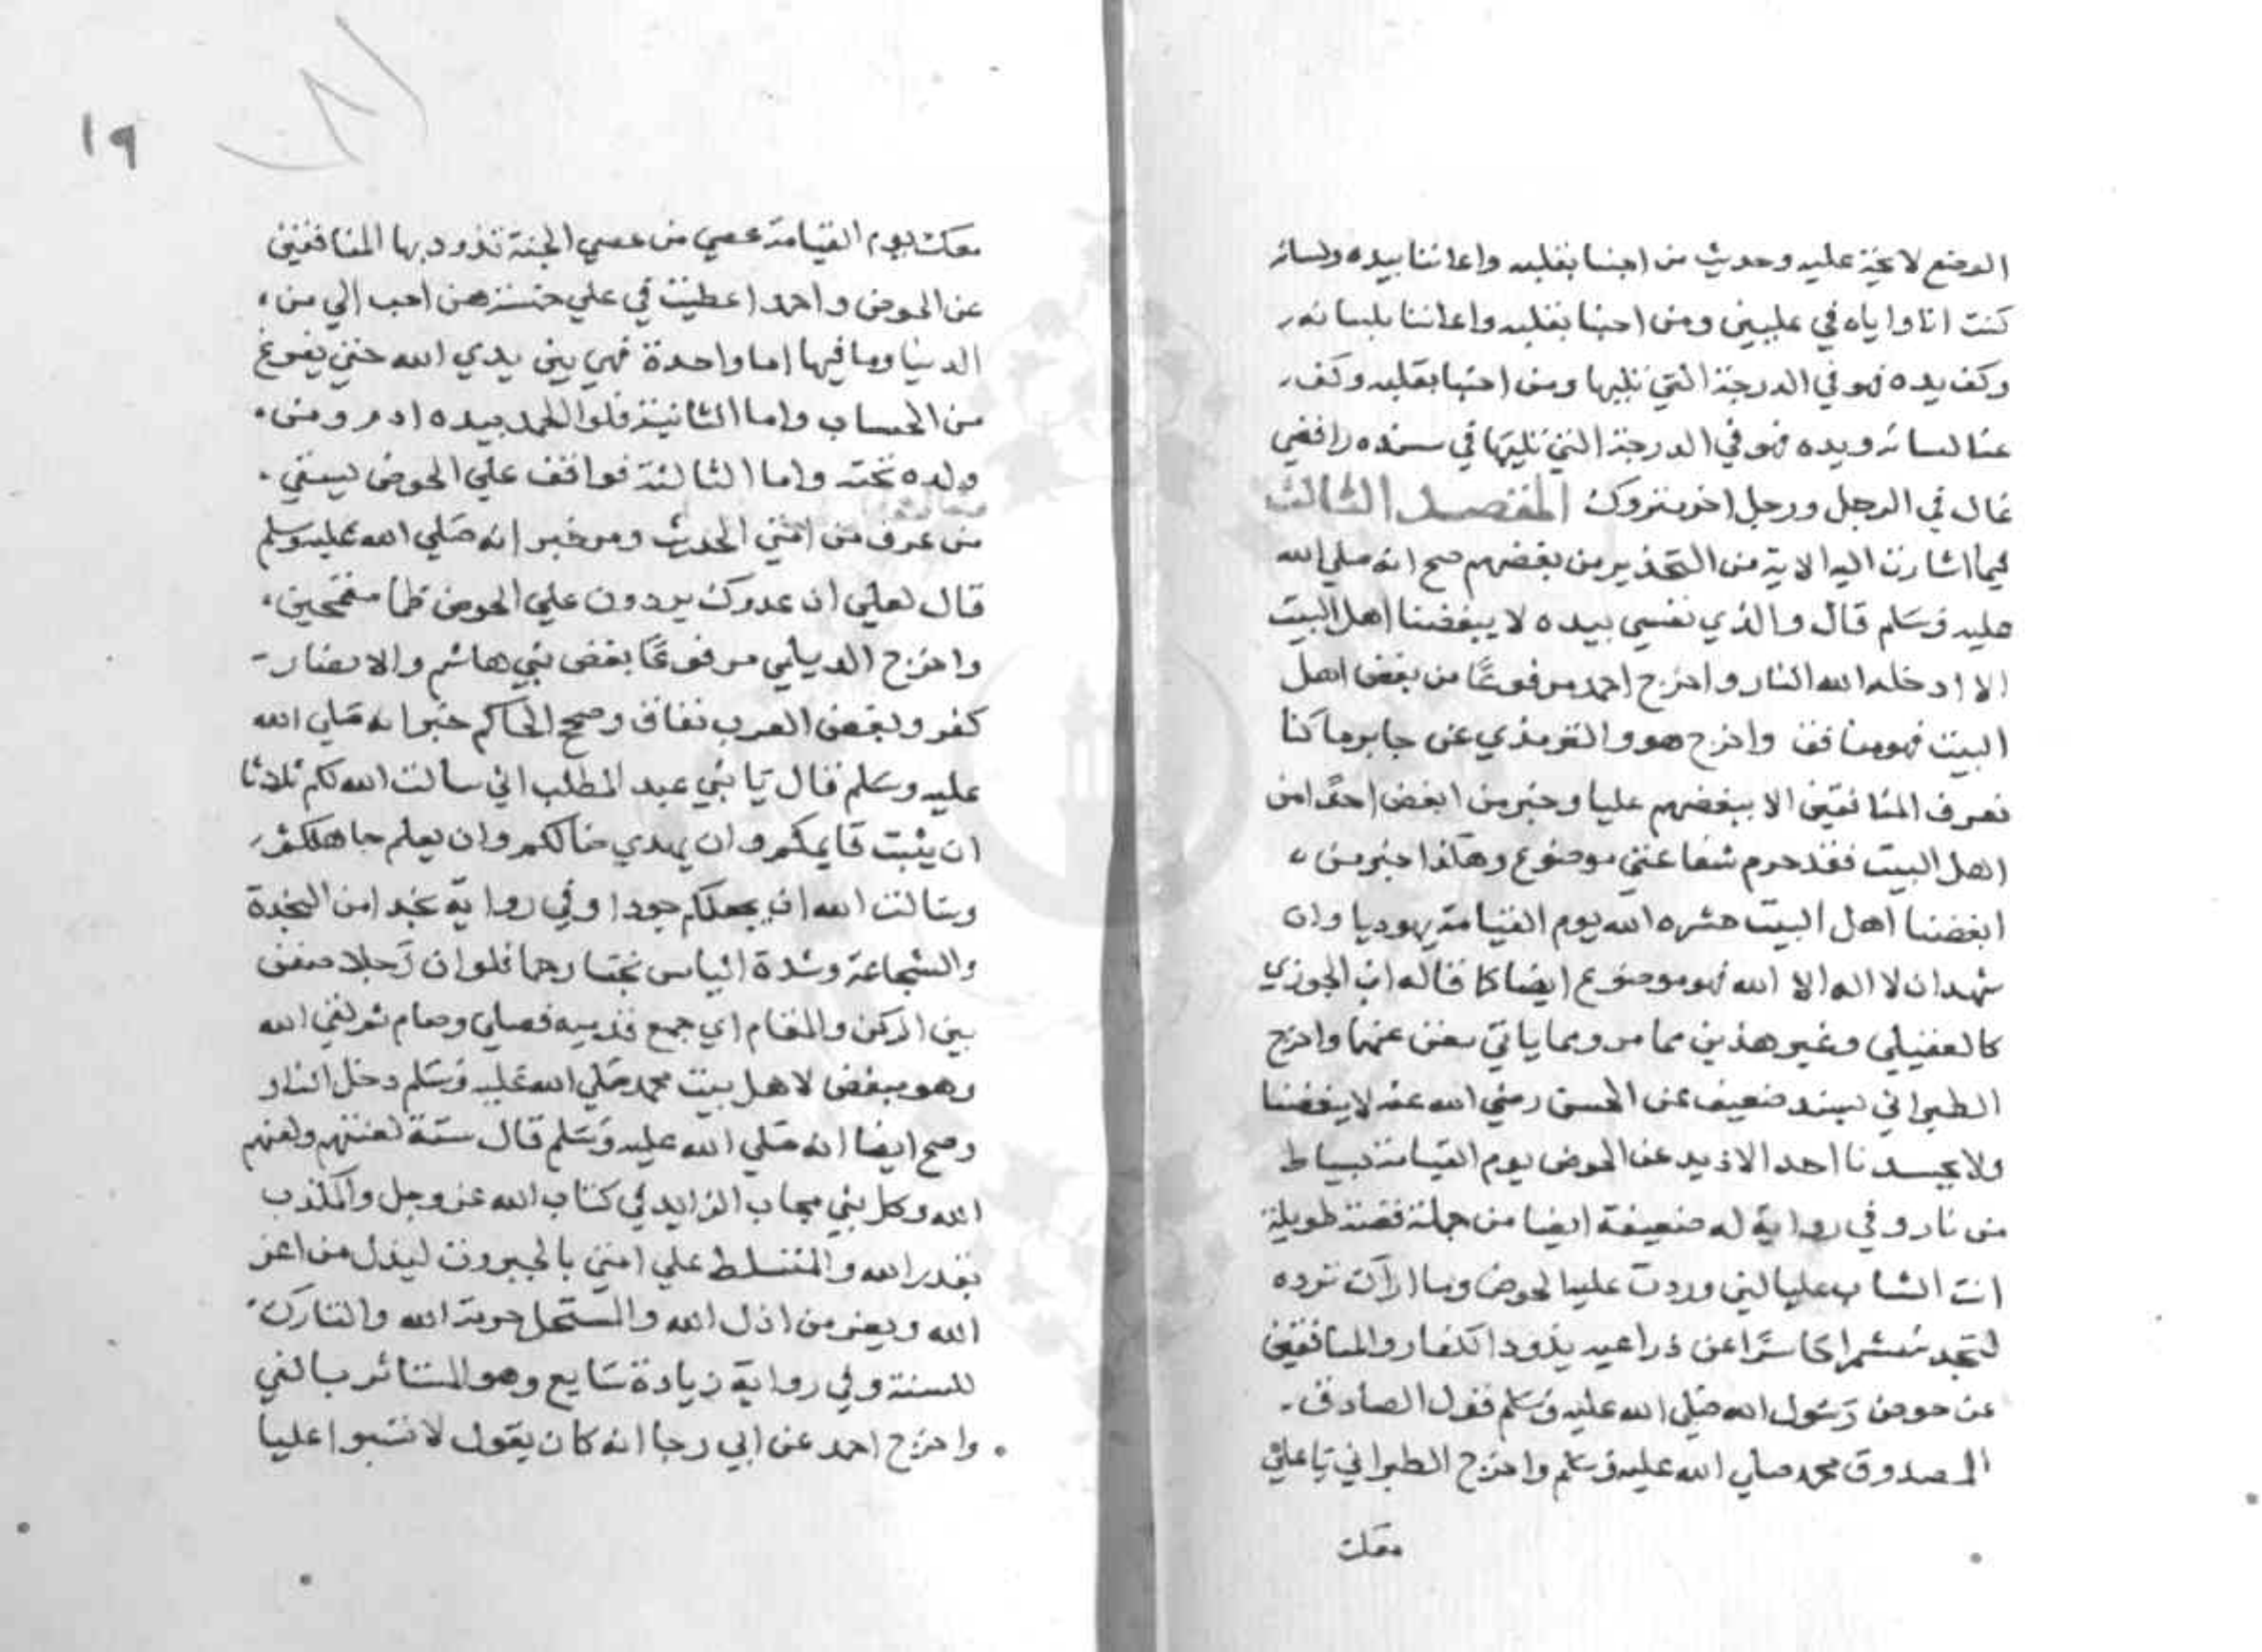 الوضع لايحة عليه وحديث من احبنا بقلبه واعاننا بيده ولسانه
كنت انا واياه في عليين ومن احبنا بقلبه واعاننا بلسانه
وكف يده فهو في الدرجة التي تليها ومن احبنا بقلبه وكف
عنا لسانه ويده فهو في الدرجة التي تليها في سنده رافضي
غال في الرجل ورجل اخر متروك المقصد الثالث
فيما اشارت اليه الاية من التحذير من بغضهم صح انه صلي الله
عليه وسلم قال والذي نفسي بيده لا يبغضنا اهل البيت
الا ادخله الله النار واخرج احمد مرفوعًا من بغض اهل
البيت فهو منافق واخرج هو والترمذي عن جابر ما كنا
نعرف المنافقين الا ببغضهم عليا وخبر من ابغض احدًا من
اهل البيت فقد حرم شفاعتي موضوع وهكذا خبر من
ابغضنا اهل البيت حشره الله يوم القيامة يهوديا وان
شهد ان لا اله الا الله فهو موضوع ايضا كما قاله ابن الجوزي
كالعقيلي وغير هذين مما مر ومما ياتي مغن عنهما واخرج
الطبراني بسند ضعيف عن الحسن رضي الله عنه لا يبغضنا
ولا يحسدنا احد الا ذيد عن الحوض يوم القيامة بسياط
من نار وفي رواية له ضعيفة ايضا من جملة قصة طويلة
انت الساب عليا لئن وردت عليه الحوض وما اراك ترده
لتجد مشمرا حاسرًا عن ذراعيه يذود الكفار والمنافقين
عن حوض رسول الله صلي الله عليه وسلم قول الصادق
المصدوق محمد صلي الله عليه وسلم واخرج الطبراني يا علي
معك
١٩
معك يوم القيامة عصي من عصي الجنة تذود بها المنافقين
عن الحوض واحمد اعطيت في علي خمسة هن احب الي من
الدنيا وما فيها اما واحدة فهي بين يدي الله حتي يفرغ
من الحساب واما الثانية فلوا الحمد بيده ادم ومن
ولده تحته واما الثالثة فواقف علي الحوض ليسقي
من عرف من امتي الحديث ومر خبر انه صلي الله عليه وسلم
قال لعلي ان عدوك يردون علي الحوض ظما مقمحين
واخرج الديلمي مرفوعًا بغض بني هاشم والانصار
كفر وبغض العرب نفاق وصحح الحاكم خبر انه صلي الله
عليه وسلم قال يا بني عبد المطلب اني سالت الله لكم ثلاثا
ان يثبت قايمكم وان يهدي ضالكم وان يعلم جاهلكم
وسالت الله ان يجعلكم جودا وفي رواية نجدا من النجدة
والشجاعة وشدة الباس نجبا رحما فلو ان رجلا صفن
بين الركن والمقام اي جمع قدميه فصلي وصام ثم لقي الله
وهو مبغض لاهل بيت محمد صلي الله عليه وسلم دخل النار
وصح ايضا انه صلي الله عليه وسلم قال ستة لعنتهم ولعنهم
الله وكل نبي مجاب الزايد في كتاب الله عز وجل والمكذب
بقدر الله والمتسلط علي امتي بالجبروت ليذل من اعز
الله ويعز من اذل الله والمستحل حرمة الله والتارك
للسنة وفي رواية زيادة سابع وهو المستاثر بالفي
واخرج احمد عن ابي رجا انه كان يقول لا تسبوا عليا